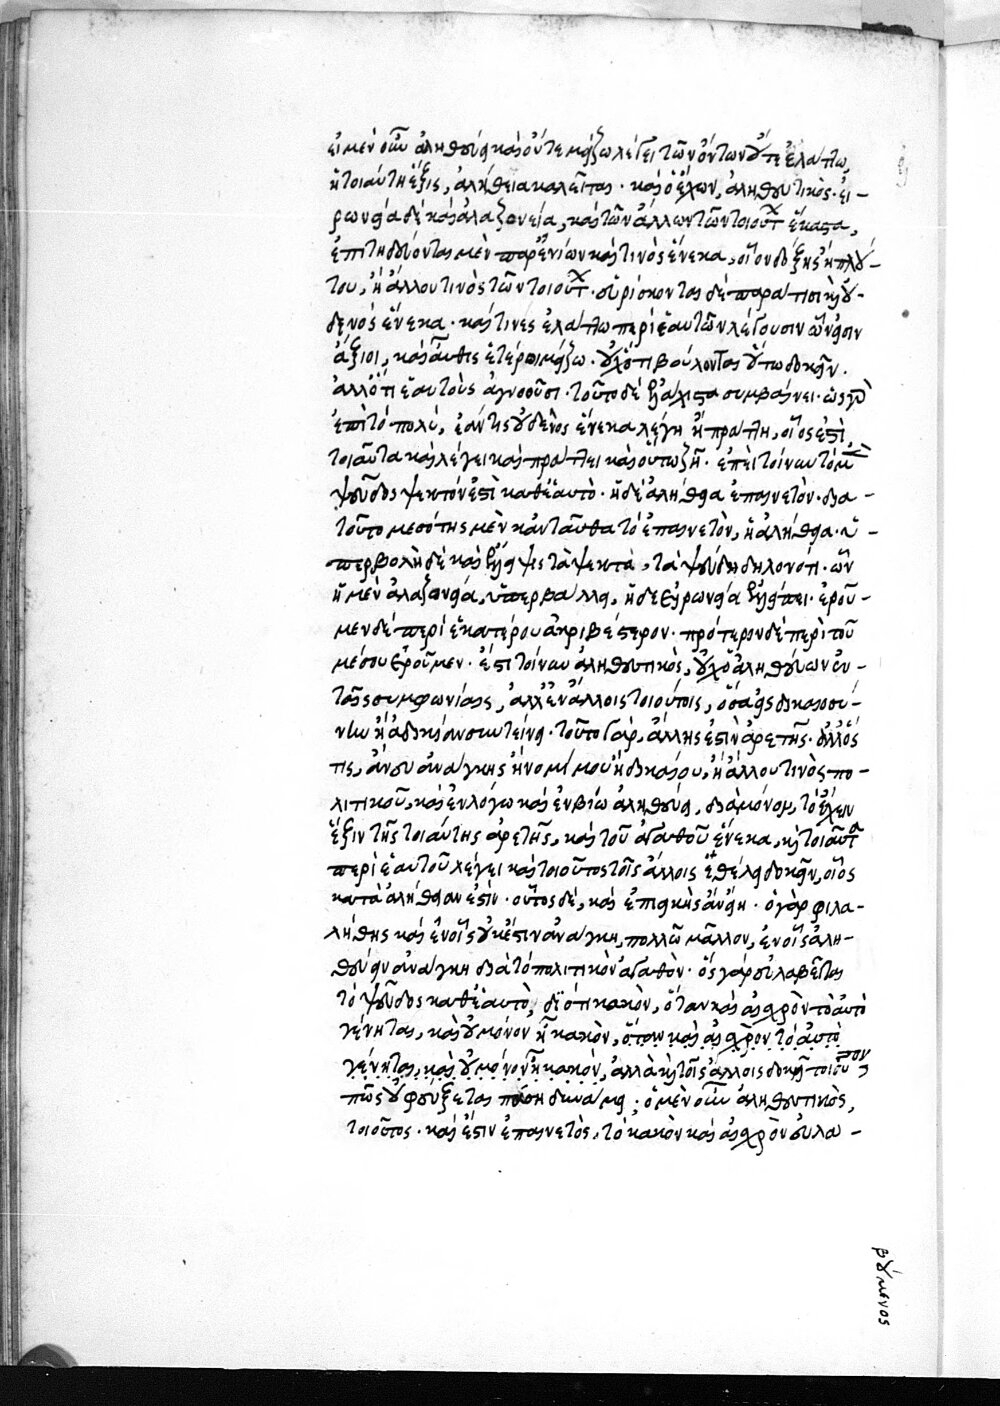 εἰ μὲν οὖν ἀληθεύει καὶ οὔτε μείζω λέγει τῶν ὄντων οὔτε ἐλάττω,
ἡ τοιαύτη ἕξις, ἀλήθεια καλεῖται· καὶ ὁ ἔχων, ἀληθευτικός· εἰ-
ρωνεία δὲ καὶ ἀλαζονεία, καὶ τῶν ἄλλων τῶν τοιούτ ἕκαστα,
ἐπιτηδεύονται μὲν παρ' ἐνίων καί τινος ἕνεκα, οἷον δόξης ἢ πλού-
του, ἢ ἄλλου τινὸς τῶν τοιούτ· εὑρίσκονται δὲ παρά τισι καὶ οὐ-
δενὸς ἕνεκα· καί τινες ἐλάττω περὶ ἑαυτῶν λέγουσιν ὧν εἰσιν
ἄξιοι, καὶ αὖθις ἕτεροι μείζω· οὐχ ὅτι βούλονται οὕτω δοκεῖν.
ἀλλ' ὅτι ἑαυτοὺς ἀγνοοῦσι· τοῦτο δὲ ἐλάχιστα συμβαίνει· ὡς γὰρ
ἐπὶ τὸ πολύ, ἐάν τις οὐδενὸς ἕνεκα λέγῃ ἢ πράττῃ, οἷός ἐστι
τοιαῦτα καὶ λέγει καὶ πράττει καὶ οὕτω ζῇ· ἐπεὶ τοίνυν τὸ μὲν
ψεῦδος ψεκτόν ἐστι καθ' ἑαυτό· ἡ δὲ ἀλήθεια ἐπαινετόν· διὰ -
τοῦτο μεσότης μὲν κἀνταῦθα τὸ ἐπαινετὸν, ἡ ἀλήθεια· ὑ -
περβολὴ δὲ καὶ ἔλλειψις τὰ ψεκτὰ, τὰ ψεύδη δηλονότι· ὧν
ἡ μὲν ἀλαζονεία, ὑπερβάλλει, ἡ δὲ εἰρωνεία ἐλλείπει· ἐροῦ -
μεν δὲ περὶ ἑκατέρου ἀκριβέστερον· πρότερον δὲ περὶ τοῦ
μέσου ἐροῦμεν· ἔστι τοίνυν ἀληθευτικὸς, οὐχ ὁ ἀληθεύων ἐν -
ταῖς συμφωνίαις, ἀλλ' ἐν ἄλλοις τοιούτοις, ὅσα εἰς δικαιοσύ-
νην ἢ ἀδικίαν συντείνει· τοῦτο γὰρ, ἄλλης ἐστὶν ἀρετῆς· ἀλλ' ὅς
τις, ἄνευ ἀνάγκης ἢ νομίμου ἢ δικαίου, ἢ ἄλλου τινὸς πο-
λιτικοῦ, καὶ ἐν λόγῳ καὶ ἐν βίῳ ἀληθεύει, διὰ μόνον, τὸ ἔχειν
ἕξιν τῆς τοιαύτης ἀρετῆς, καὶ τοῦ ἀγαθοῦ ἕνεκα, καὶ τοιαῦτα
περὶ ἑαυτοῦ λέγει καὶ τοιοῦτος τοῖς ἄλλοις ἐθέλει δοκεῖν, οἷος
κατὰ ἀλήθειαν ἐστίν· οὗτος δὲ, καὶ ἐπιεικὴς ἂν εἴη· ὁ γὰρ φιλα-
λήθης καὶ ἐν οἷς οὐκ ἔστιν ἀνάγκη, πολλῷ μᾶλλον, ἐν οἷς ἀλη-
θεύειν ἀνάγκη διὰ τὸ πολιτικὸν ἀγαθόν· ὃς γὰρ εὐλαβεῖται
τὸ ψεῦδος καθ' ἑαυτὸ, διότι κακὸν, ὅταν καὶ αἰσχρὸν τὸ αὐτὸ
γένηται, καὶ οὐ μόνον ᾖ κακὸν, ὅταν καὶ αἰσχρὸν τὸ αὐτὸ
γένηται, καὶ οὐ μόνον ᾖ κακὸν, ἀλλὰ καὶ τοῖς ἄλλοις δοκῇ τοιοῦτον
πῶς οὐ φεύξεται πάσῃ δυνάμει; ὁ μὲν οὖν ἀληθευτικὸς,
τοιοῦτος· καὶ ἔστιν ἐπαινετὸς, τὸ κακὸν καὶ αἰσχρὸν εὐλα -
βούμενος